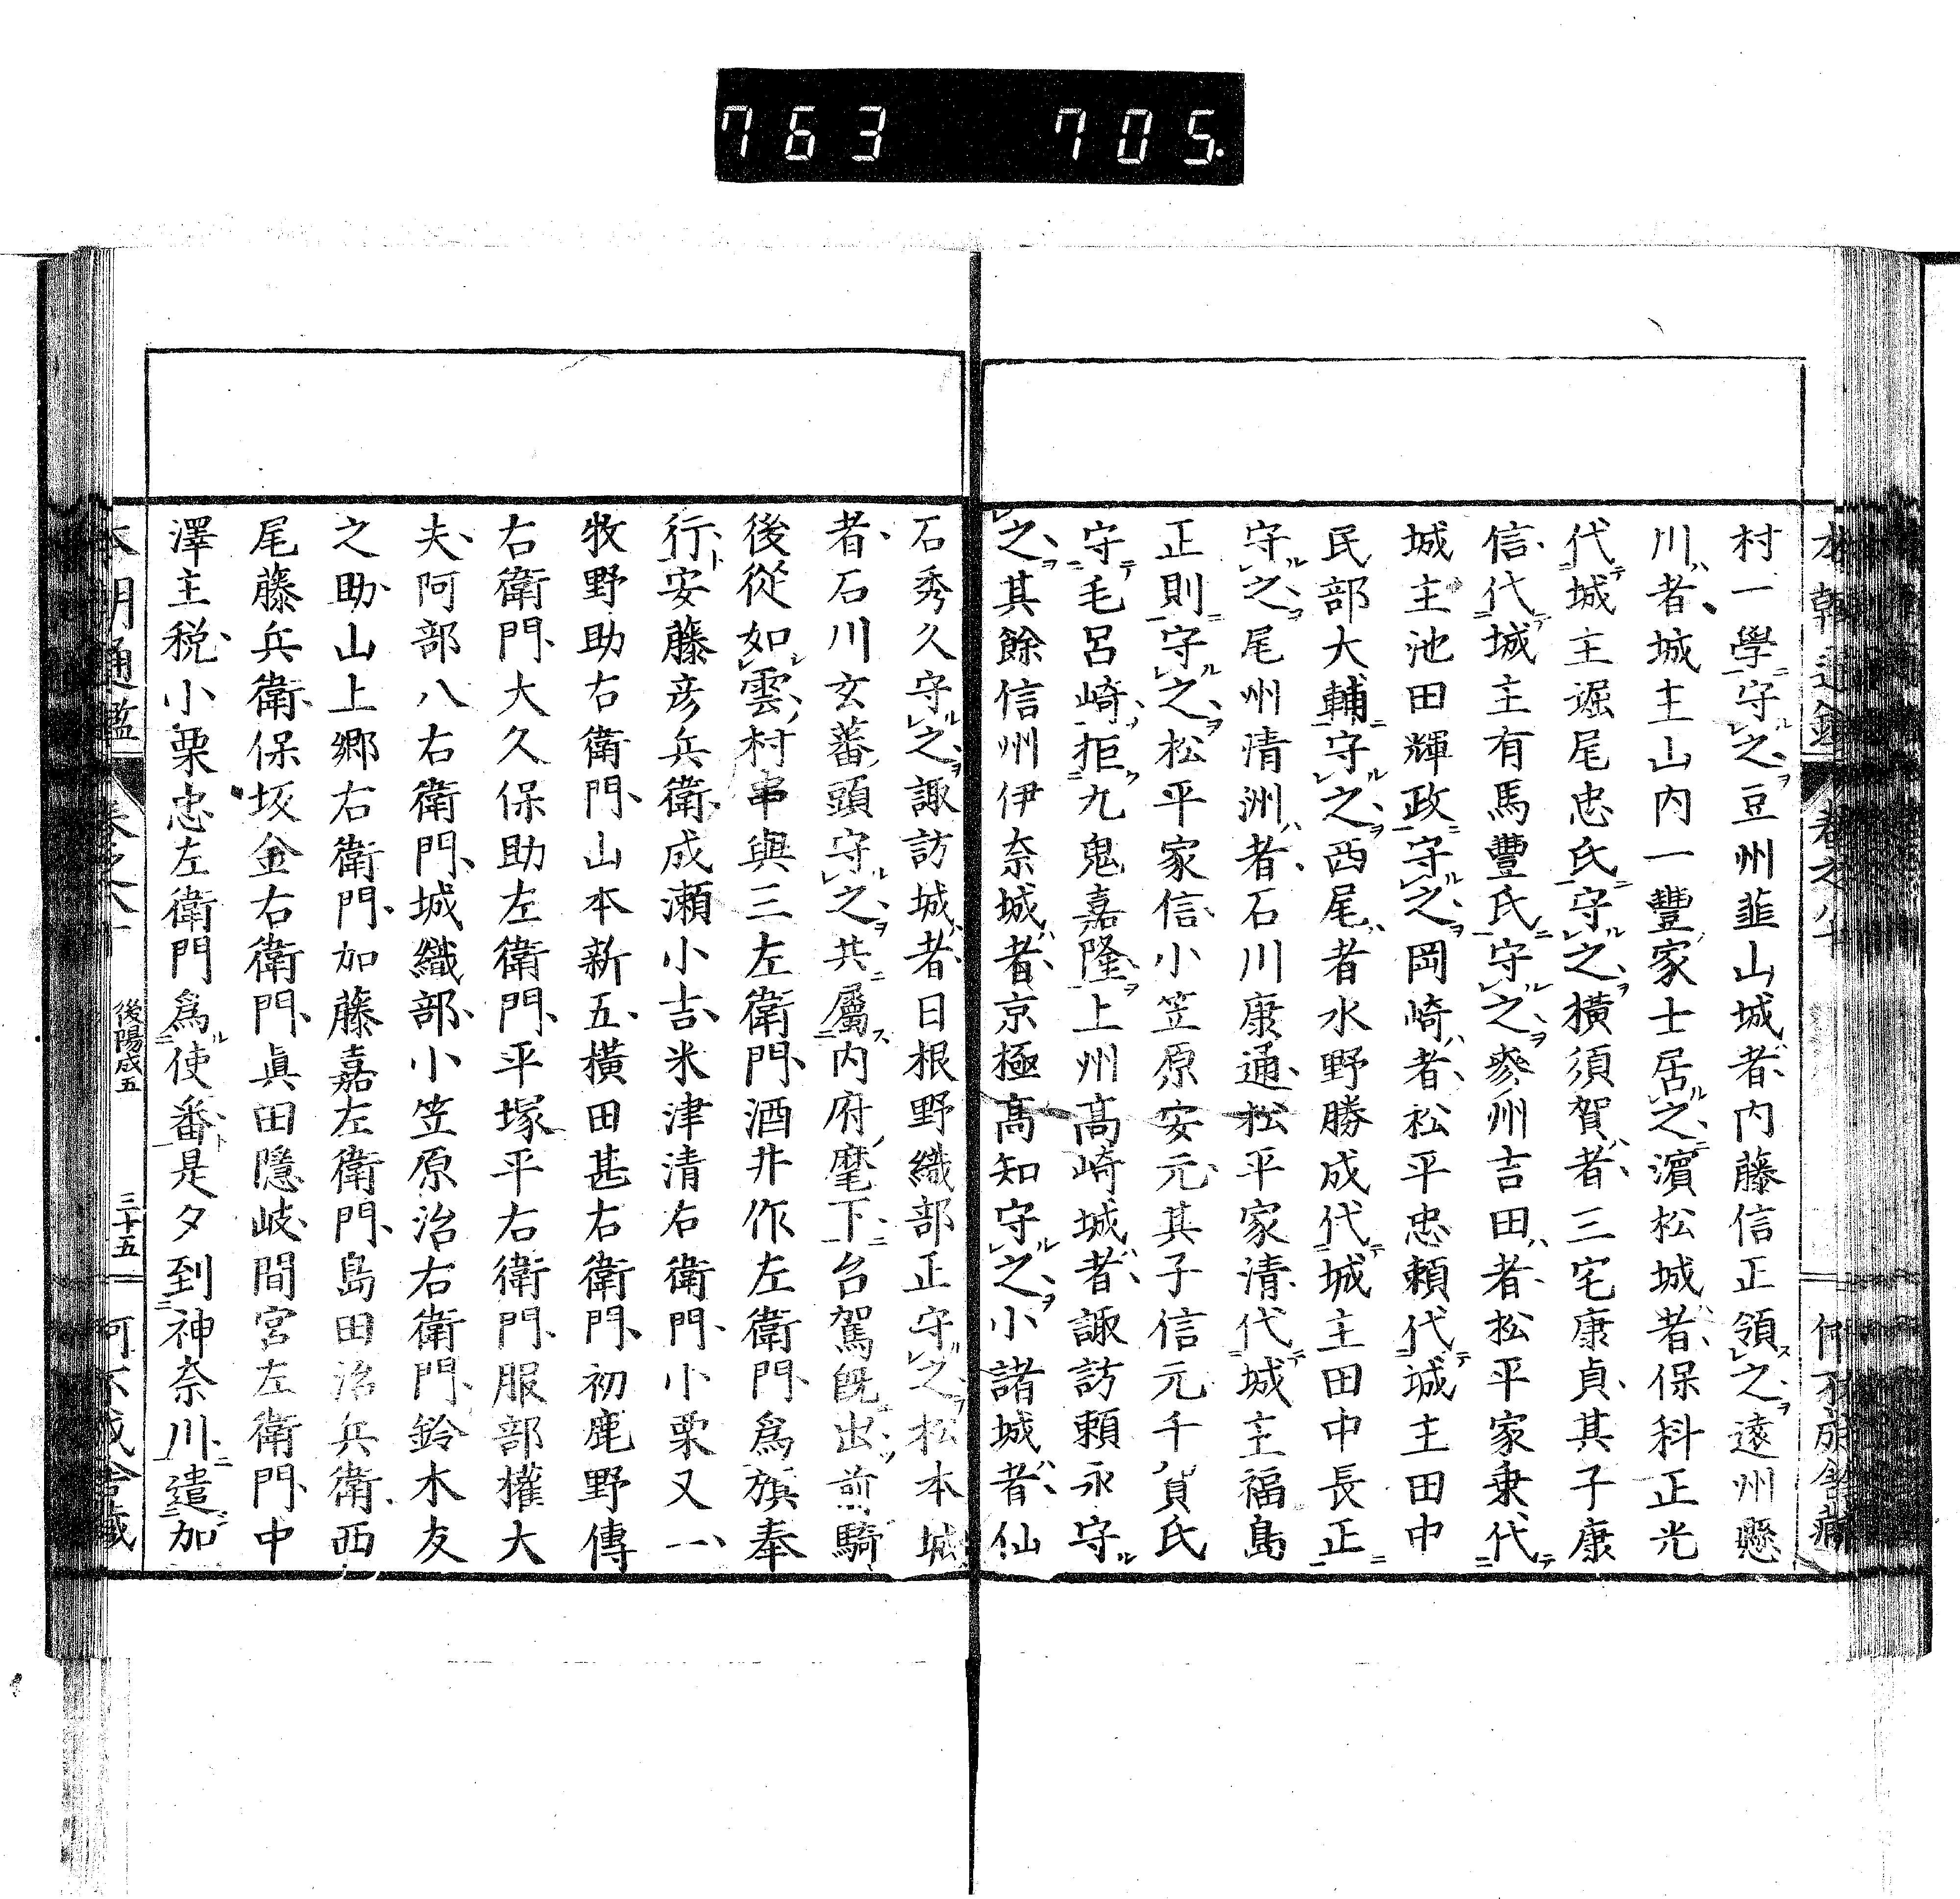 763 705.
村一學守之豆州韮山城者內藤信正領之遠州懸
川者城主山内一豐家士居之濵松城者保科正光
代城主堀尾忠氏守之横須賀者三宅康貞其子康
信代城主有馬豐氏守之參州吉田者松平家乗代
城主池田輝政守之岡崎者松平忠頼代城主田中
民部大輔守之西尾者水野勝成代城主田中長正
守之尾州清洲者石川康通松平家清代城主福島
正則守之松平家信小笠原安元其子信元千賀氏
守毛呂崎拒九鬼嘉隆上州髙崎城者諏訪頼永守
之其餘信州伊奈城者京極髙知守之小諸城者仙
石秀久守之諏訪城者日根野織部正守之松本城
者石川玄蕃頭守之共屬内府麾下台駕旣出前騎
後從如雲村串與三左衛門酒井作左衛門爲旗奉
行安藤彦兵衛成瀬小吉米津清右衛門小栗又一
牧野助右衛門山本新五横田甚右衛門初鹿野傳
右衛門大久保助左衛門平塚平右衛門服部權大
夫阿部八右衛門城織部小笠原治右衛門鈴木友
之助山上郷右衛門加藤嘉左衛門島田治兵衛西
尾藤兵衛保坂金右衛門眞田隱岐間宮左衛門中
澤主税小栗忠左衛門爲使番是夕到神奈川遣加
後陽成五
三十五